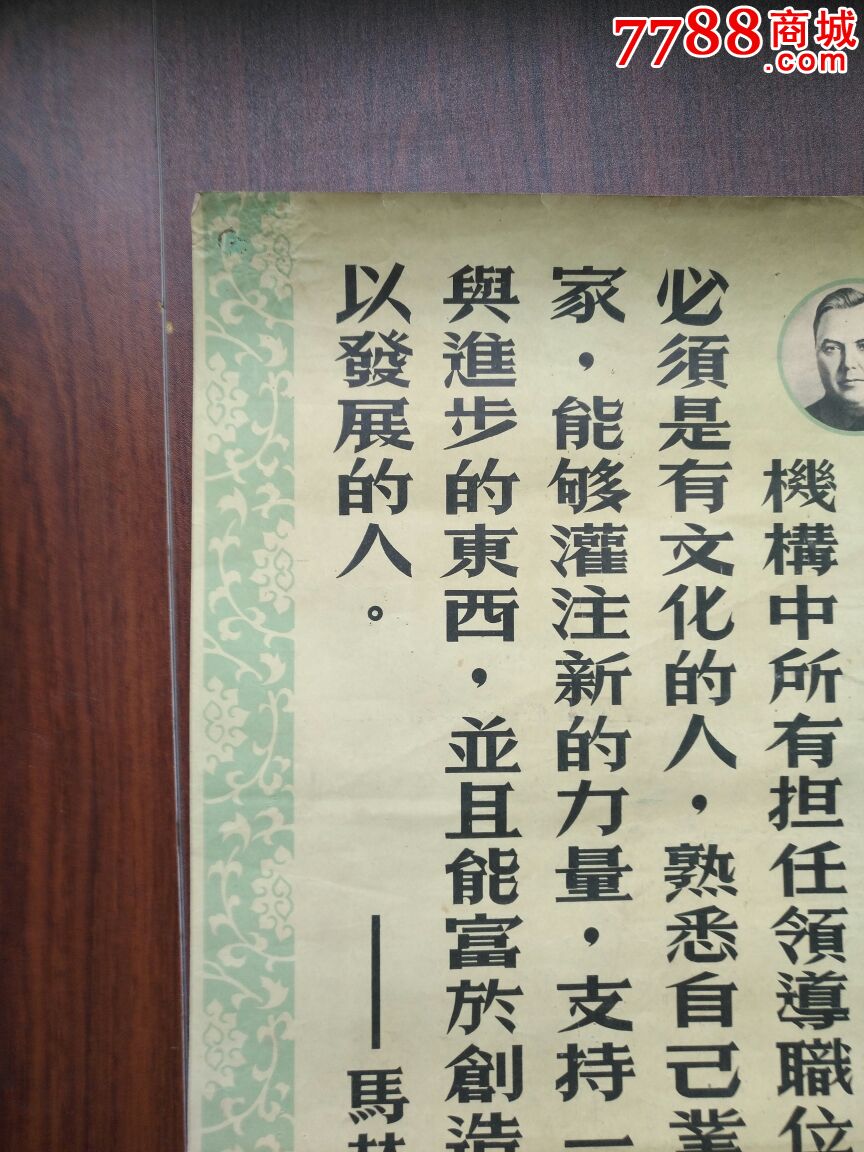 7788商城
.com
機構中所有担任領導職位
必須是有文化的人，熟悉自己業
家，能够灌注新的力量，支持一
與進步的東西，並且能富於創造
以發展的人。
——馬林